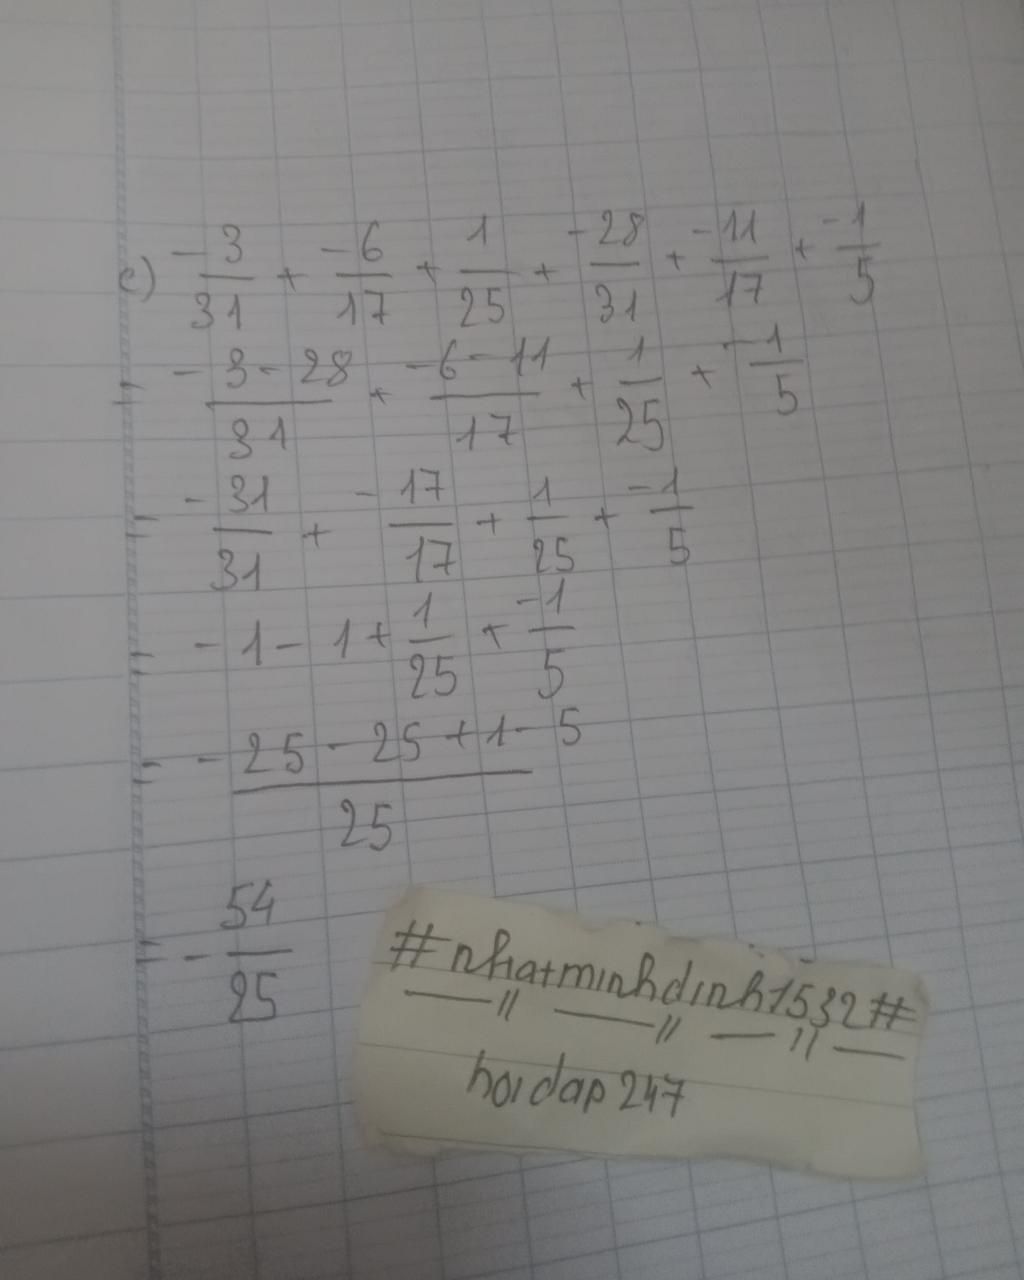 e) -3/31 + -6/17 + 1/25 + -28/31 + -11/17 + -1/5
= -3-28/31 + -6-11/17 + 1/25 + -1/5
= -31/31 + -17/17 + 1/25 + -1/5
= -1-1+1/25 + -1/5
= -25-25+1-5/25
= -54/25
#nhatminhdinh1532#
hoidap247